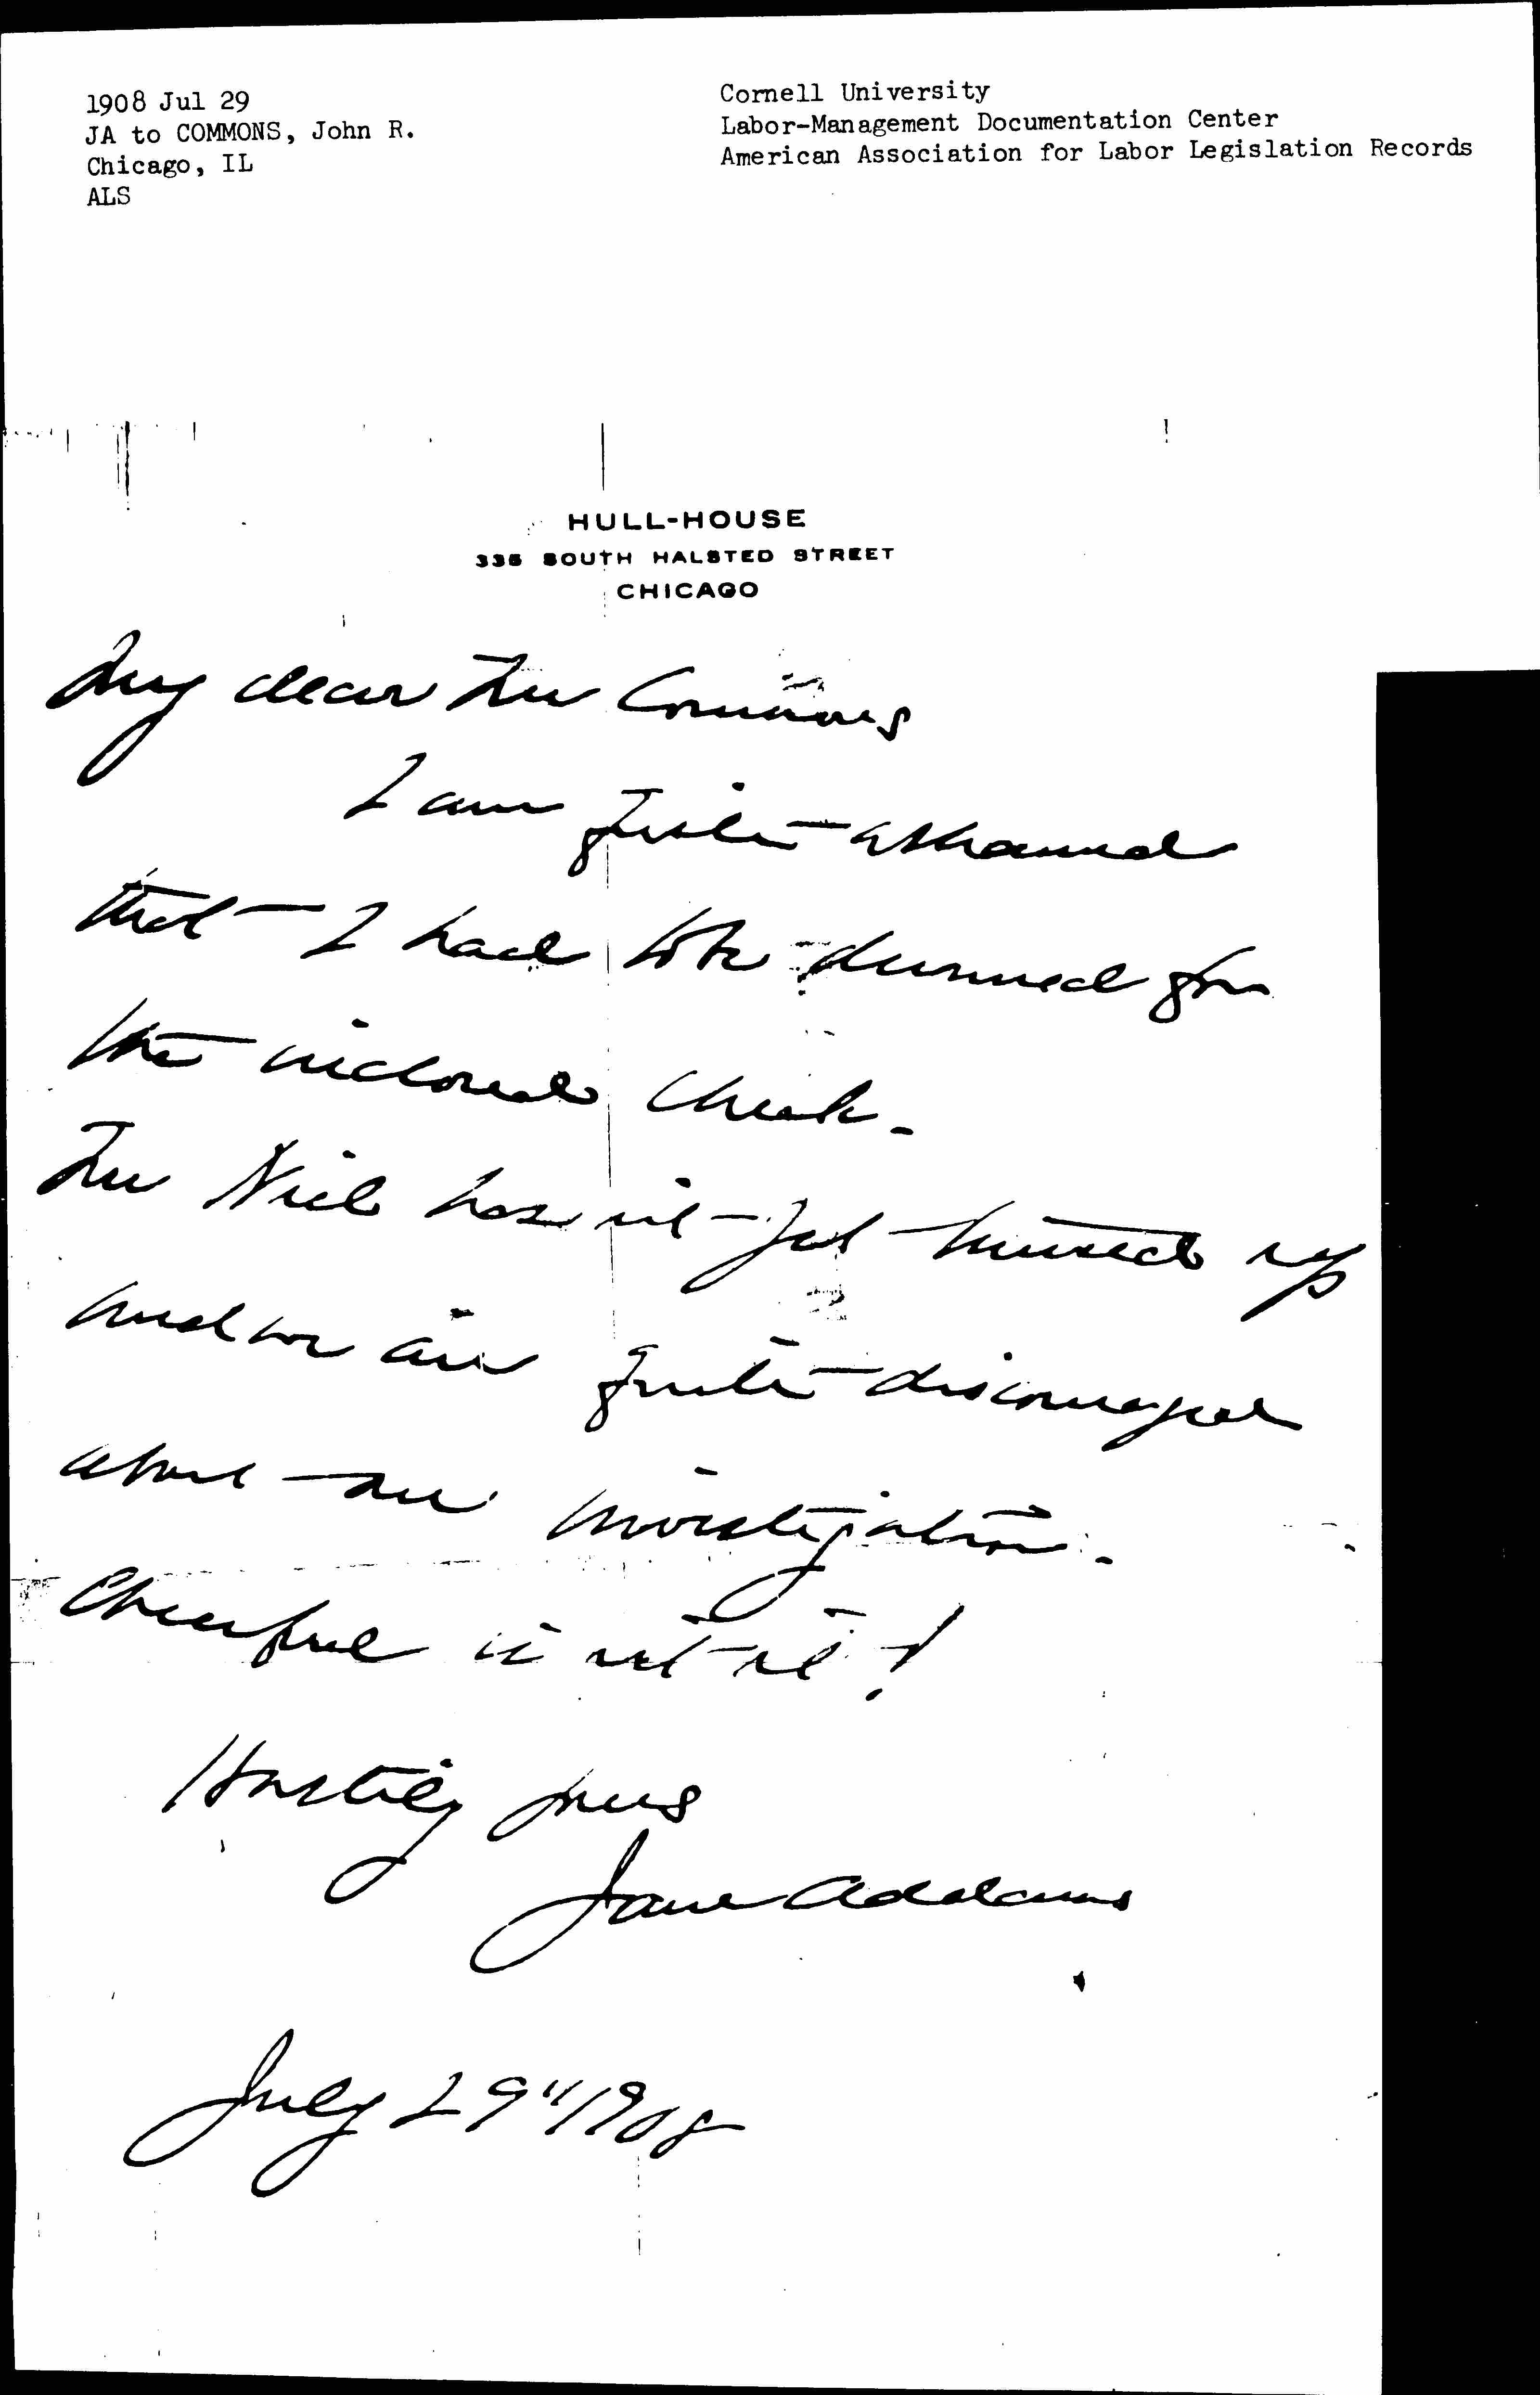 1908 Jul 29
JA to COMMONS, John R.
Chicago, IL
ALS
Cornell University
Labor-Management Documentation Center
American Association for Labor Legislation Records
HULL-HOUSE
335 SOUTH HALSTED STREET
CHICAGO
My dear Mr Commons
I am quite ashamed
that I had to be dunned for
the inclosed check.
Mr Niel has not yet turned up
and we are quite discouraged
about our investigation.
Cheerful is not it!
Hastily yours
Jane Addams
July 29" 1908